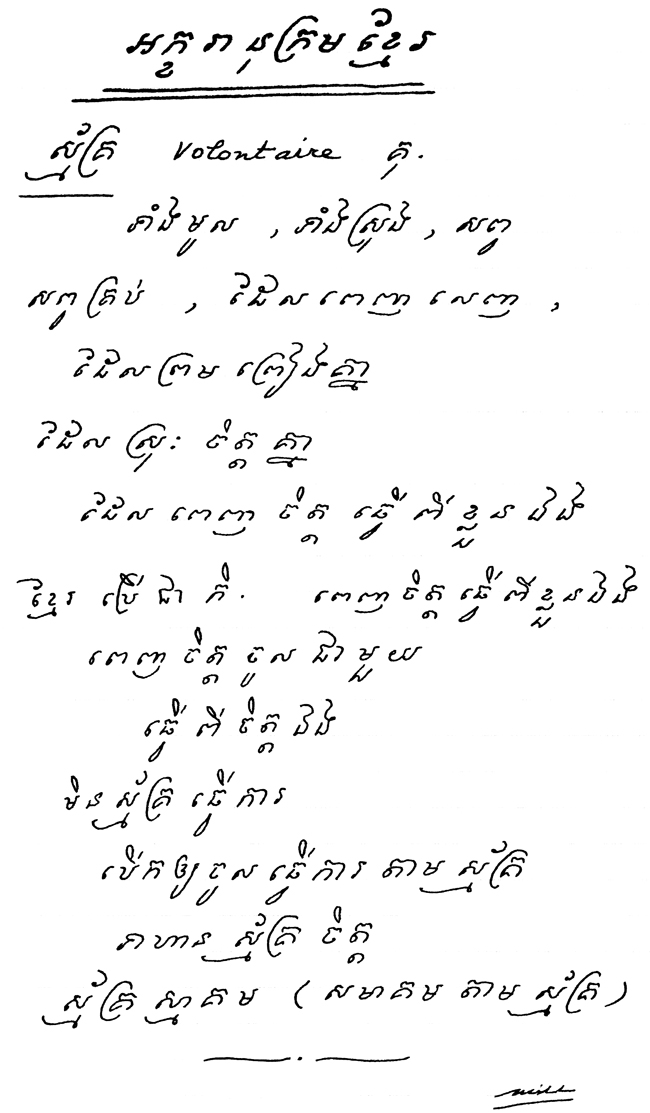 អក្ខរានុក្រមខ្មែរ
ស្ម័គ្រ Volontaire គុ.
ទាំងមូល , ទាំងស្រុង , សព្វ
សព្វគ្រប់ , ដែល ពេញ លេញ ,
ដែលព្រម ព្រៀងគ្នា
ដែល ស្រុះ ចិត្ត គ្នា
ដែល ពេញ ចិត្ត ធ្វើ ពី ខ្លួន ឯង
ខ្មែរ ប្រើ ជា កិ. ពេញចិត្ត ធ្វើ ពីខ្លួនឯង
ពេញ ចិត្ត ចូល ជា មួយ
ធ្វើ ពី ចិត្ត ឯង
មិនស្ម័គ្រ ធ្វើការ
បើកឲ្យចូល ធ្វើការ តាម ស្ម័គ្រ
ទាហាន ស្ម័គ្រ ចិត្ត
ស្ម័គ្រ ស្មាគម ( សមាគម តាម ស្ម័គ្រ )